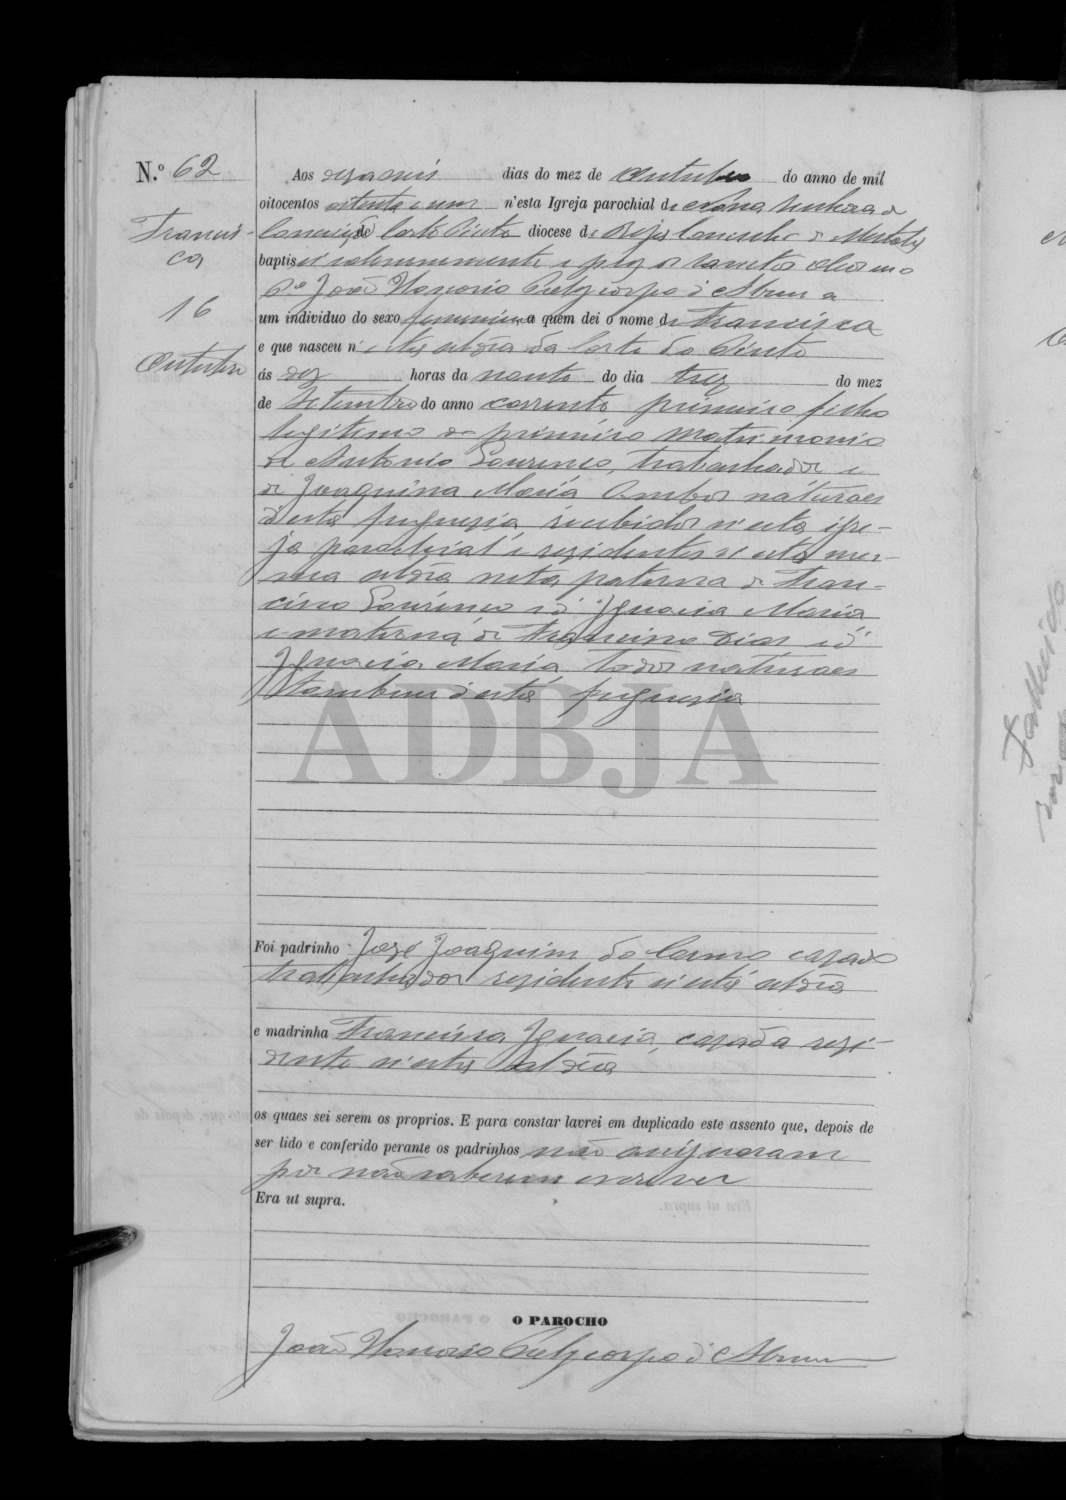 N.º 62
Francis-
ca
16
Outubro
Aos dezaseis dias do mez de Outubro do anno de mil
oitocentos oitenta e um n'esta Igreja parochial de Nossa Senhora da
Conceição do Corte Pinto diocese de Beja Concelho de Mertola
baptisei solemnemente e puz os sanctos oleos eu o
P.e João Honorio d'Abreu a
um individuo do sexo feminino a quem dei o nome de Francisca
e que nasceu n'esta aldêa da Corte do Pinto
ás dez horas da noute do dia trez do mez
de Setembro do anno corrente primeiro filho
legitimo do primeiro matrimonio
de Antonio Lourenço, trabalhador e
de Joaquina Maria ambos naturaes
d'esta freguezia, recebidos n'esta igre-
ja parochial e rezidentes n'esta mes-
ma aldêa neta paterna de Fran-
cisco Lourenço e d' Ignacia Maria
e materna de Francisco Dias e d'
Ignacia Maria, todos naturaes
tambem d'esta freguezia
ADBJA
Foi padrinho José Joaquim do Carmo cazado
trabalhador rezidente n'esta aldêa
e madrinha Francisca Ignacia, cazada rezi-
dente n'esta aldêa
os quaes sei serem os proprios. E para constar lavrei em duplicado este assento que, depois de
ser lido e conferido perante os padrinhos não assignaram
por não saberem escrever
Era ut supra.
O PAROCHO
João Honorio d'Abreu